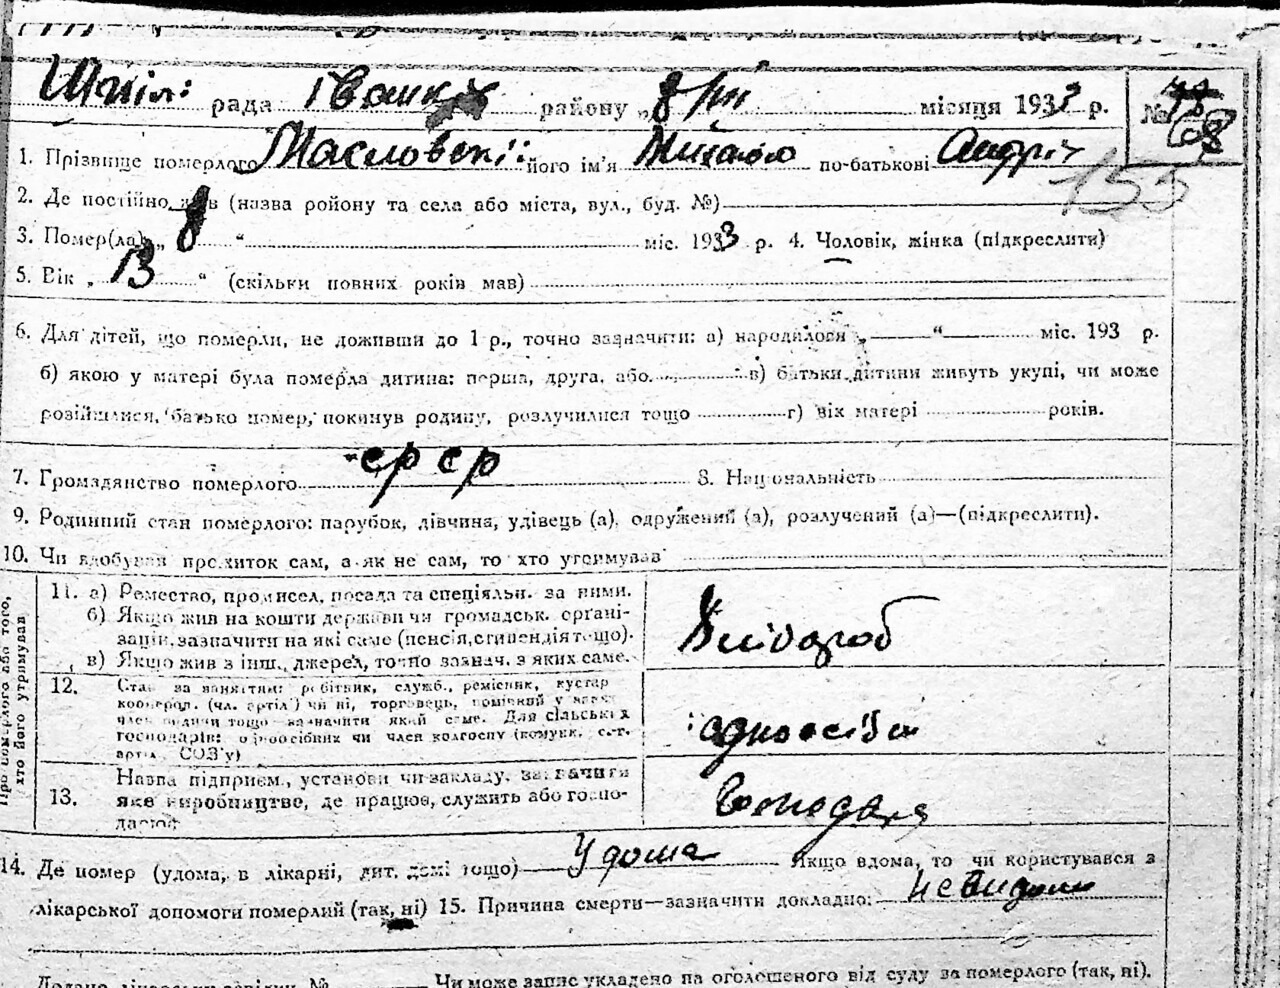 Шпіл: рада Іванк району „ 8/VII місяця 1933 р. № 78 68
1. Прізвище померлого Масловскі: його ім'я Михайло по-батькові Андрій
155
2. Де постійно жив (назва ройону та села або міста, вул., буд. №)
3. Помер(ла) „ 8 “ міс. 1933 р. 4. Чоловік, жінка (підкреслити)
5. Вік „ 13 “ (скільки повних років мав)
6. Для дітей, що померли, не доживши до 1 р., точно зазначити: а) народилося „ “ міс. 193 р.
б) якою у матері була померла дитина: перша, друга, або в) батьки дитини живуть укупі, чи може
розійшлися, батько помер, покинув родину, розлучилися тощо г) вік матері років.
7. Громадянство померлого СРСР 8. Національність
9. Родинний стан померлого: парубок, дівчина, удівець (а), одружений (а), розлучений (а)—(підкреслити).
10. Чи здобував прожиток сам, а як не сам, то хто утримував
Про померлого або того, хто його утримував
11. а) Ремество, промисел, посада та спеціяльн. за ними.
б) Якщо жив на кошти держави чи громадськ. органі-
зацій, зазначити на які саме (пенсія, стипендія тощо).
в) Якщо жив з інш. джерел, точно зазнач. з яких саме.
Хлібороб
12. Стан за заняттям: робітник, служб., ремісник, кустар
кооперов. (чл. артілі) чи ні, торговець, помічний у
член родини тощо зазначити який саме. Для сільських
господарів: одноосібник чи член колгоспу (комун. с.-г.
артіл. СОЗ'у)
одноосібн
13. Назва підприєм., установи чи закладу, зазначити
яке виробництво, де працює, служить або госпо-
дарює
Господаря
14. Де помер (удома, в лікарні, дит. домі тощо) У дома Якщо вдома, то чи користувався з
лікарської допомоги померлий (так, ні) 15. Причина смерти—зазначити докладно: невидоми
Додано лікарську довідку № Чи може запис укладено на оголошеного від суду за померлого (так, ні).